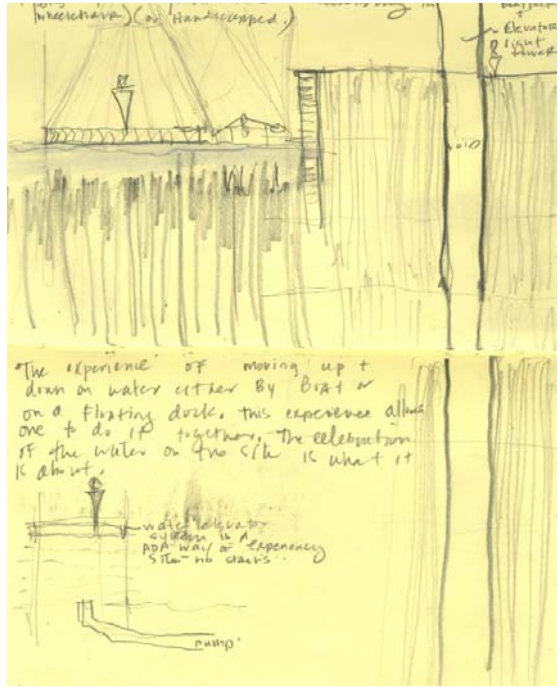 wheelchair) (or Handicapped.)
+
Elevator
Light
tower
void
The experience of moving up +
down on water either By Boat or
on a Floating dock. this experience allows
one to do it together. The celebration
of the water on the site is what it
is about.
water elevator
system is A
ADA way of experiency
site no stairs
pump